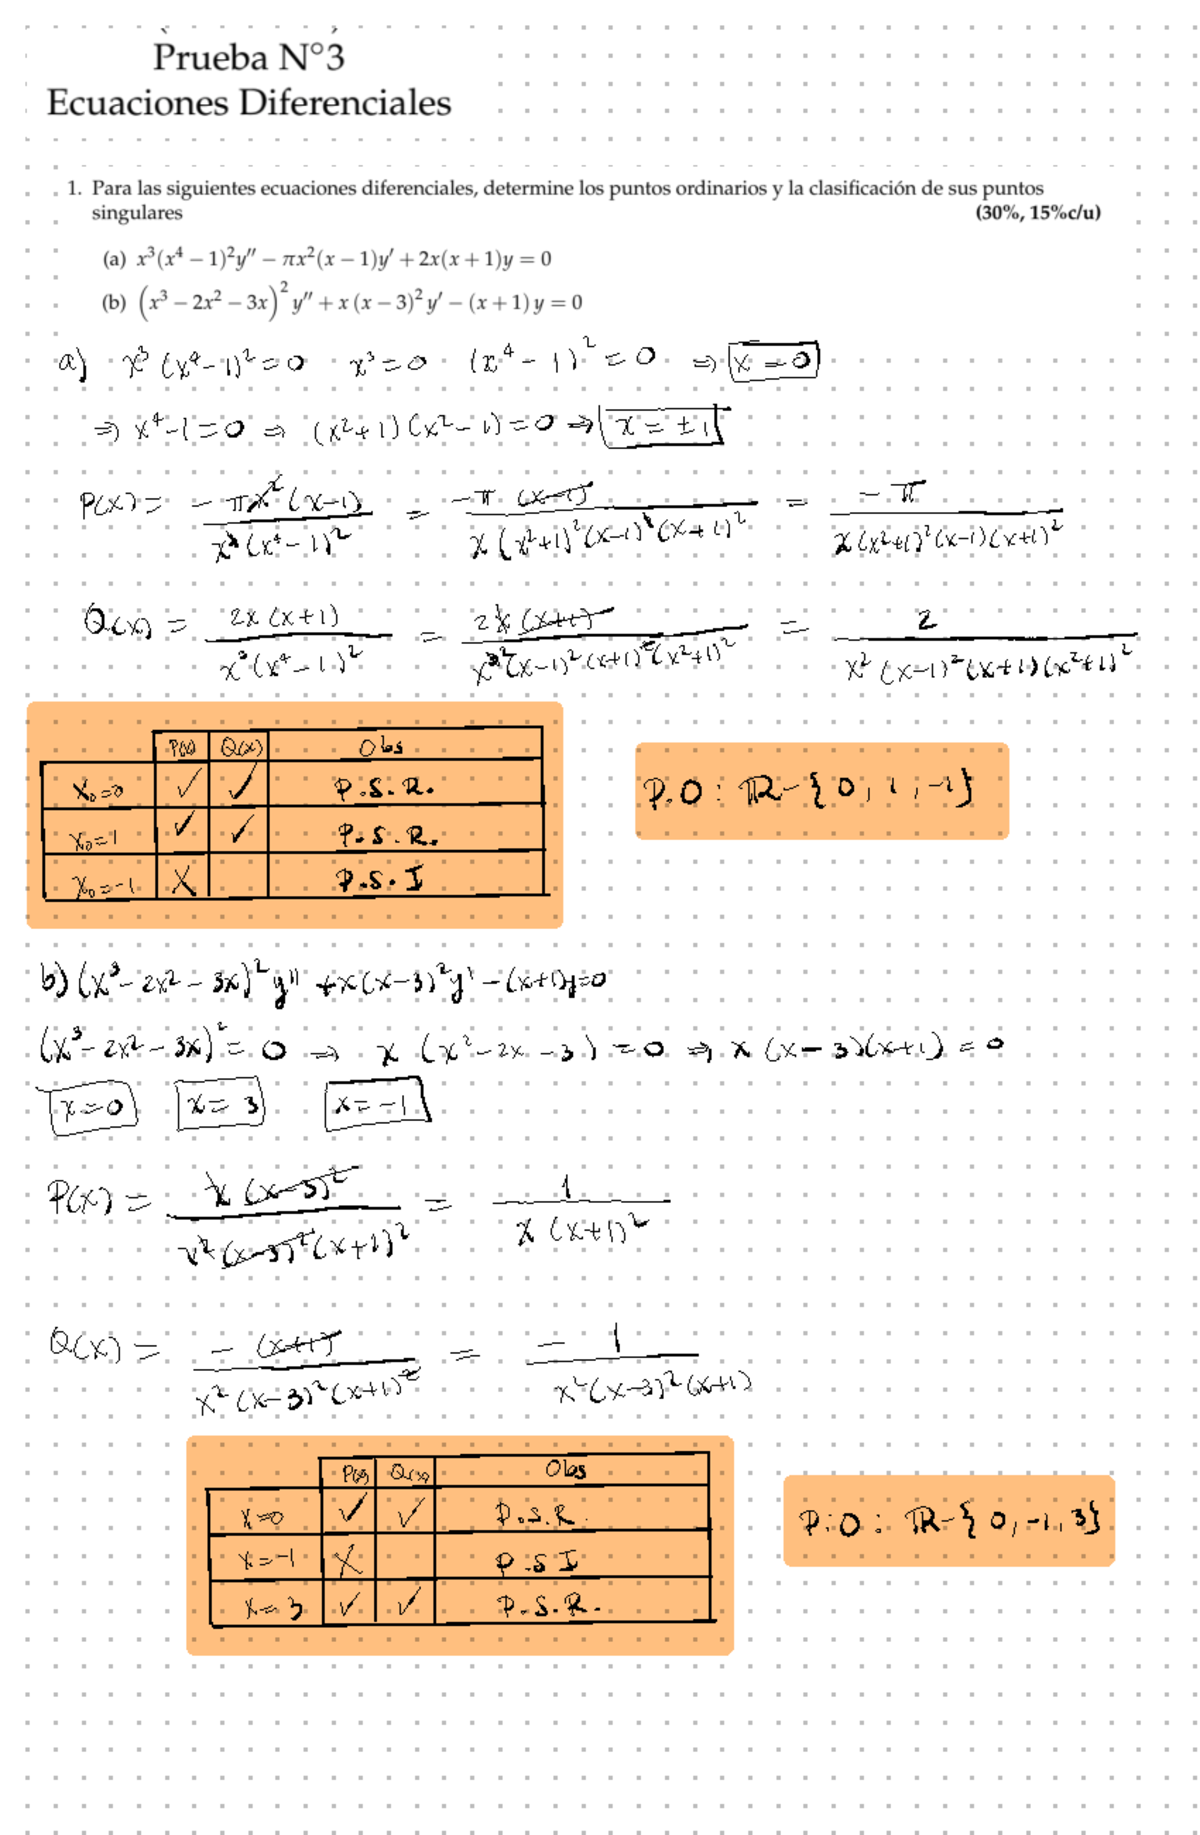 Prueba N°3
Ecuaciones Diferenciales
1. Para las siguientes ecuaciones diferenciales, determine los puntos ordinarios y la clasificación de sus puntos
singulares (30%, 15%c/u)
(a) x³(x⁴ − 1)²y″ − πx²(x − 1)y′ + 2x(x + 1)y = 0
(b) (x³ − 2x² − 3x)² y″ + x (x − 3)² y′ − (x + 1) y = 0
a) x³ (x⁴ − 1)² = 0 x³ = 0 (x⁴ − 1)² = 0 ⇒ x = 0
⇒ x⁴ − 1 = 0 ⇒ (x² + 1)(x² − 1) = 0 ⇒ x = ±1
P(x) = −πx²(x−1) / x³(x⁴−1)² = −π (x−1) / x (x²+1)²(x−1)²(x+1)² = −π / x(x²+1)²(x−1)(x+1)²
Q(x) = 2x(x+1) / x³(x⁴−1)² = 2x(x+1) / x³(x−1)²(x+1)²(x²+1)² = 2 / x²(x−1)²(x+1)(x²+1)²
P(x) Q(x) Obs
x₀=0 ✓ ✓ P.S.R.
P.O : ℝ − {0, 1, −1}
x₀=1 ✓ ✓ P.S.R.
x₀=−1 X P.S.I
b) (x³ − 2x² − 3x)² y″ + x(x−3)² y′ − (x+1)y = 0
(x³ − 2x² − 3x)² = 0 ⇒ x (x² − 2x − 3) = 0 ⇒ x (x−3)(x+1) = 0
x=0 x=3 x=−1
P(x) = x (x−3)² / x²(x−3)²(x+1)² = 1 / x (x+1)²
Q(x) = −(x+1) / x²(x−3)²(x+1)² = −1 / x²(x−3)²(x+1)
P(x) Q(x) Obs
x=0 ✓ ✓ P.S.R.
P.O : ℝ − {0, −1, 3}
x=−1 X P.S I
x=3 ✓ ✓ P.S.R.